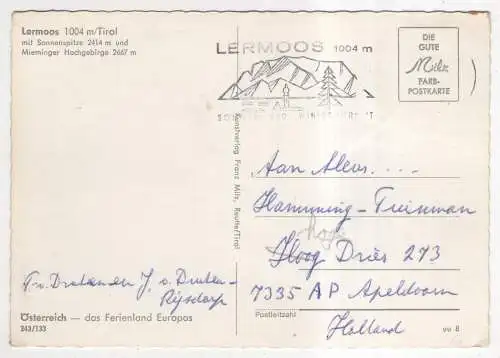 Lermoos 1004 m/Tirol
mit Sonnenspitze 2414 m und
Mieminger Hochgebirge 2667 m
LERMOOS 1004 m
DIE
GUTE
Milz
FARB-
POSTKARTE
Kunstverlag Franz Milz, Reutte/Tirol
Aan
Hamming - Tuinman
Hoog Dries 273
7335 AP Apeldoorn
Postleitzahl
Holland
J. v. Druten
Rijsdorp
Österreich — das Ferienland Europas
243/133